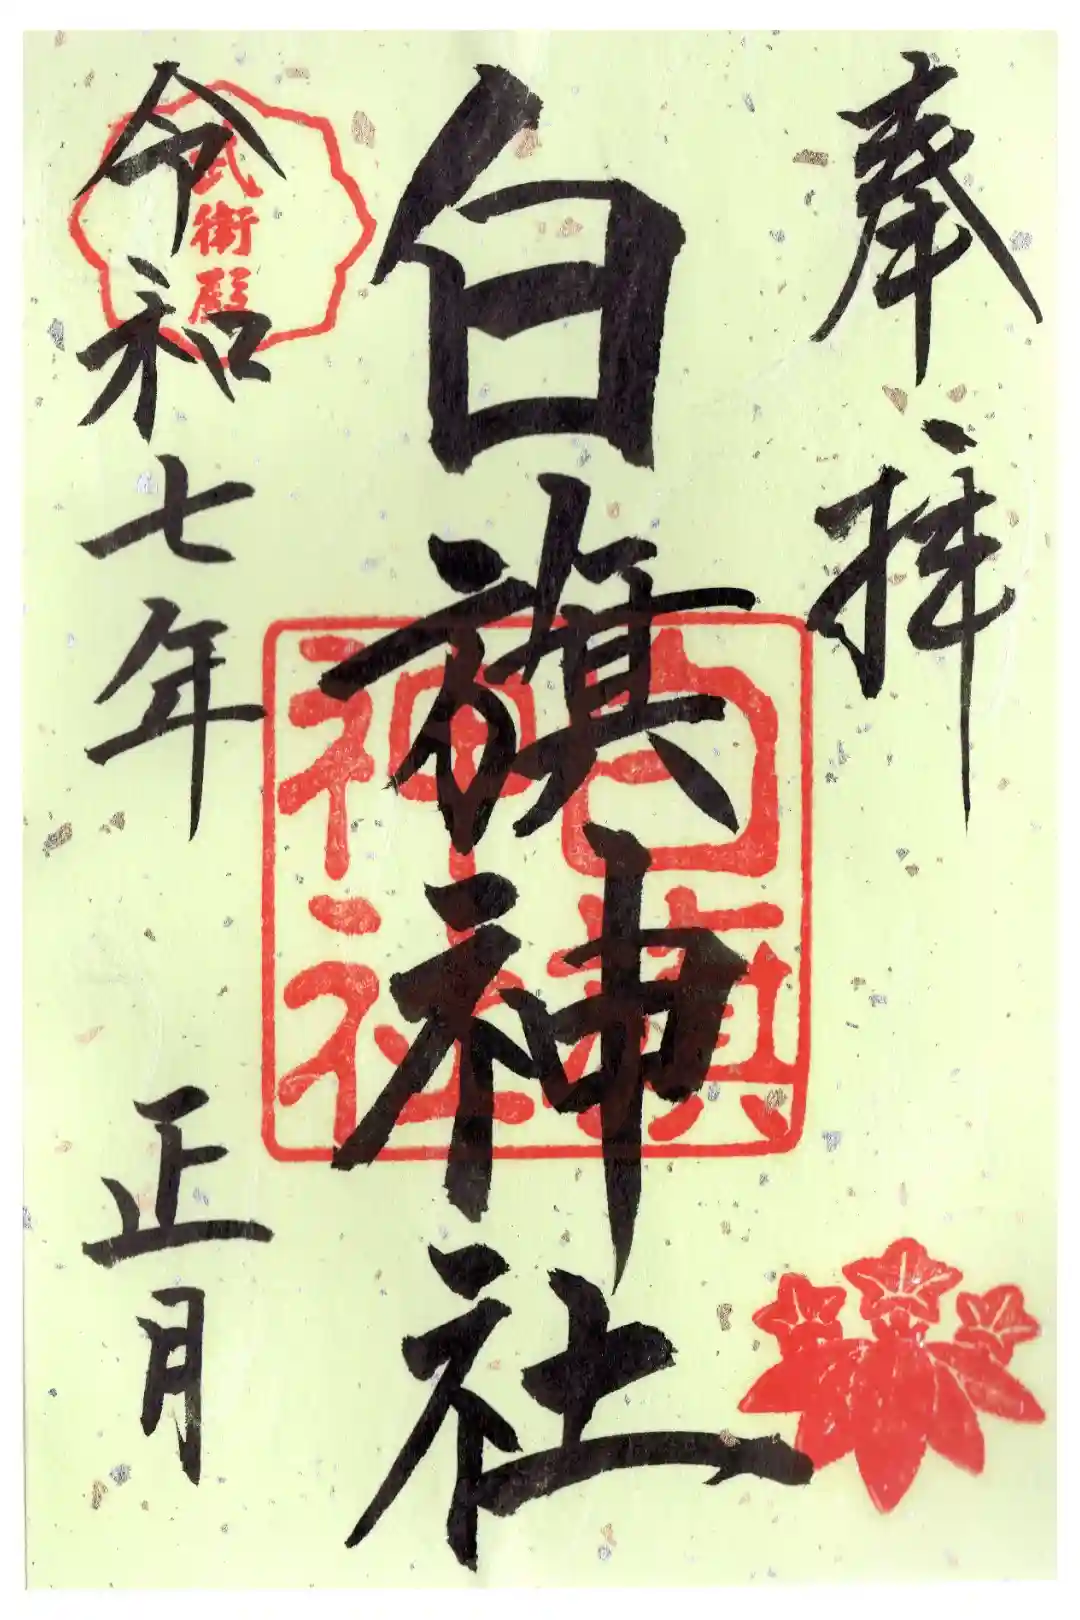 奉拝
白旗神社
白旗
神社
令和七年 正月
武術殿